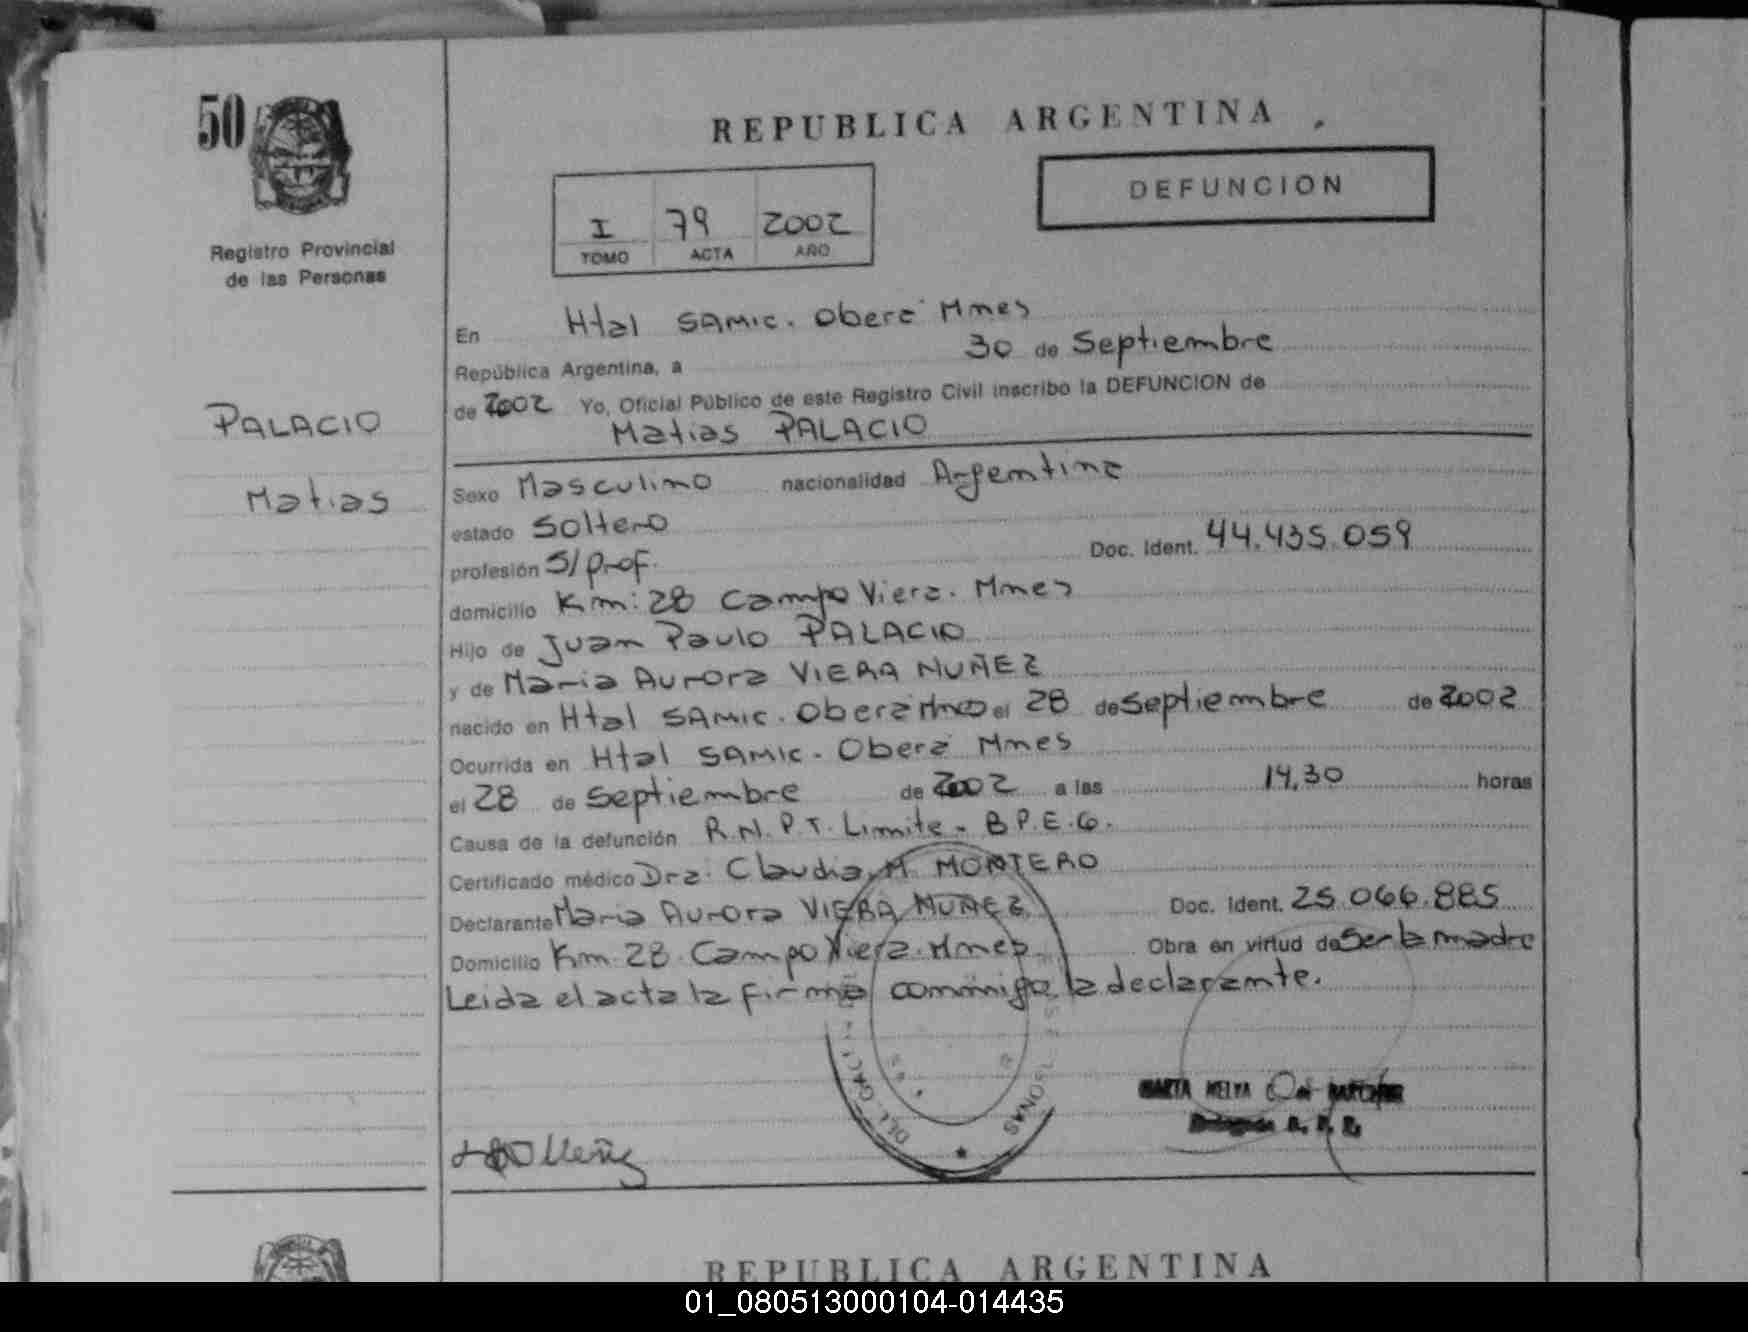 50
REPUBLICA ARGENTINA
DEFUNCION
I 79 2002
TOMO ACTA AÑO
Registro Provincial
de las Personas
PALACIO
Matias
En Htal SAMIC. Oberá Mnes
República Argentina, a 30 de Septiembre
de 2002 Yo, Oficial Público de este Registro Civil inscribo la DEFUNCION de
Matias PALACIO
Sexo Masculino nacionalidad Argentina
estado Soltero
profesión S/prof. Doc. Ident. 44.435.059
domicilio Km: 28 Campo Viera. Mnes
Hijo de Juan Paulo PALACIO
y de Maria Aurora VIERA NUÑEZ
nacido en Htal SAMIC. Oberá Mnes el 28 de Septiembre de 2002
Ocurrida en Htal SAMIC. Oberá Mnes
el 28 de Septiembre de 2002 a las 14,30 horas
Causa de la defunción R.N.P.T. Limite. B P.E.G.
Certificado médico Dra. Claudia M. MONTERO
Declarante Maria Aurora VIERA NUÑEZ Doc. Ident. 25.066.885
Domicilio Km. 28. Campo Viera. Mnes Obra en virtud de Ser la madre
Leida el acta la firma conmigo la declarante.
DEL
SONAS
REPUBLICA ARGENTINA
01_080513000104-014435